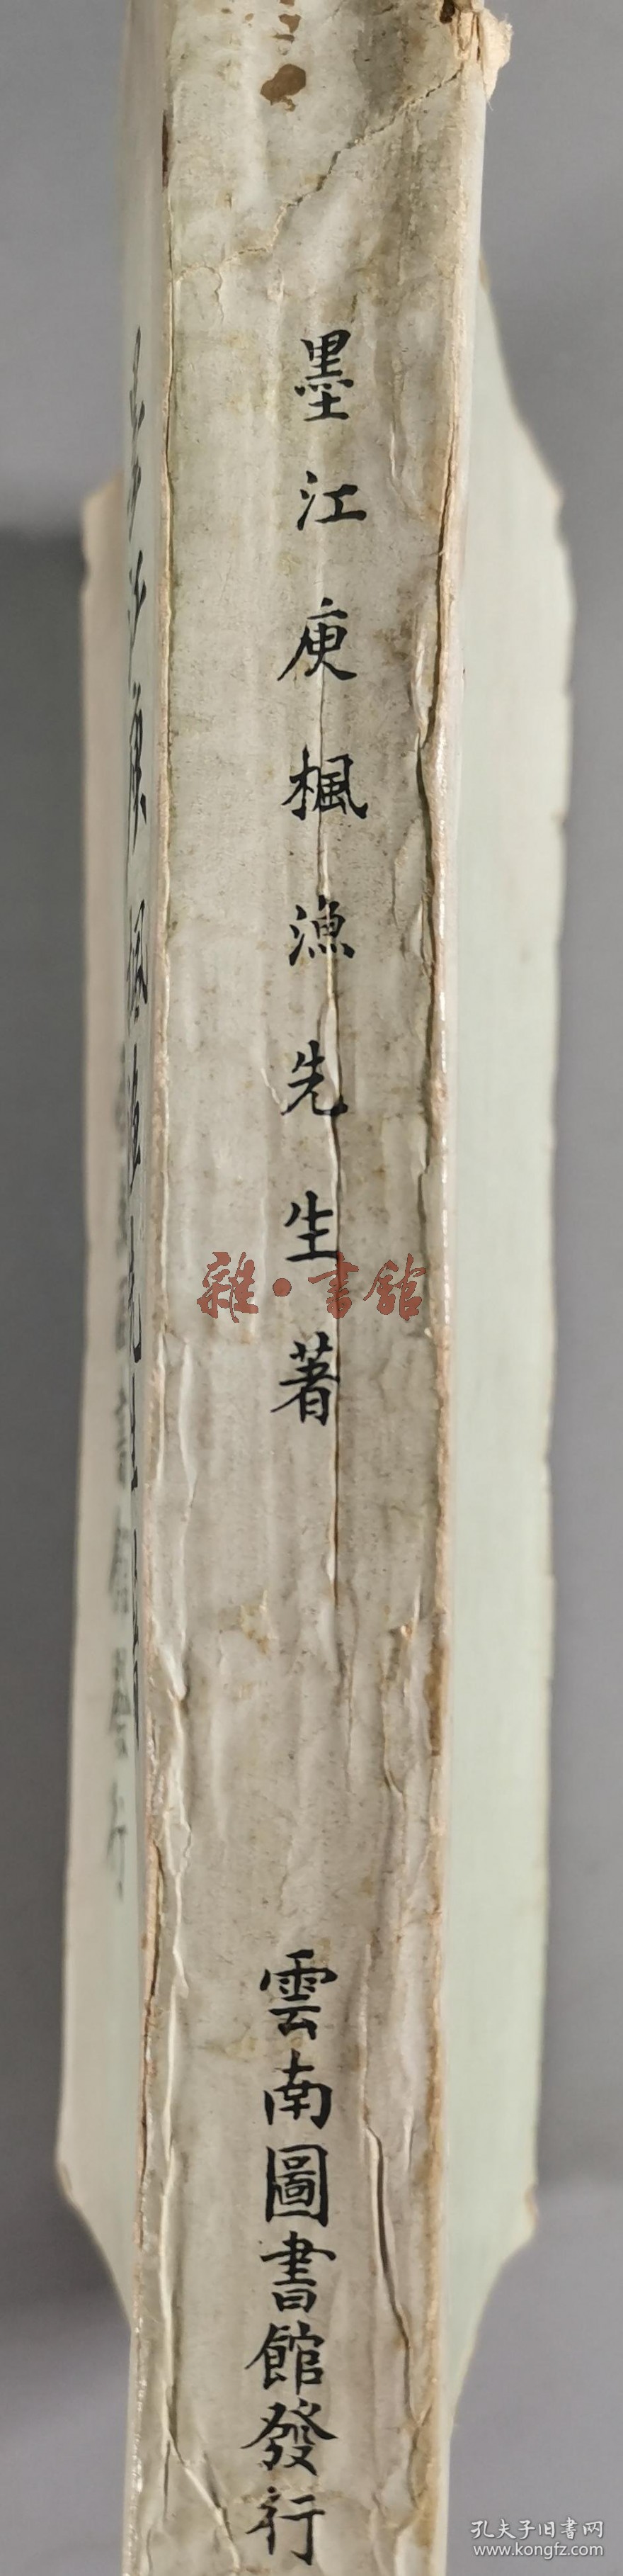 墨江庾楓漁先生著
雜·書舘
雲南圖書館發行
孔夫子旧书网
www.kongfz.com